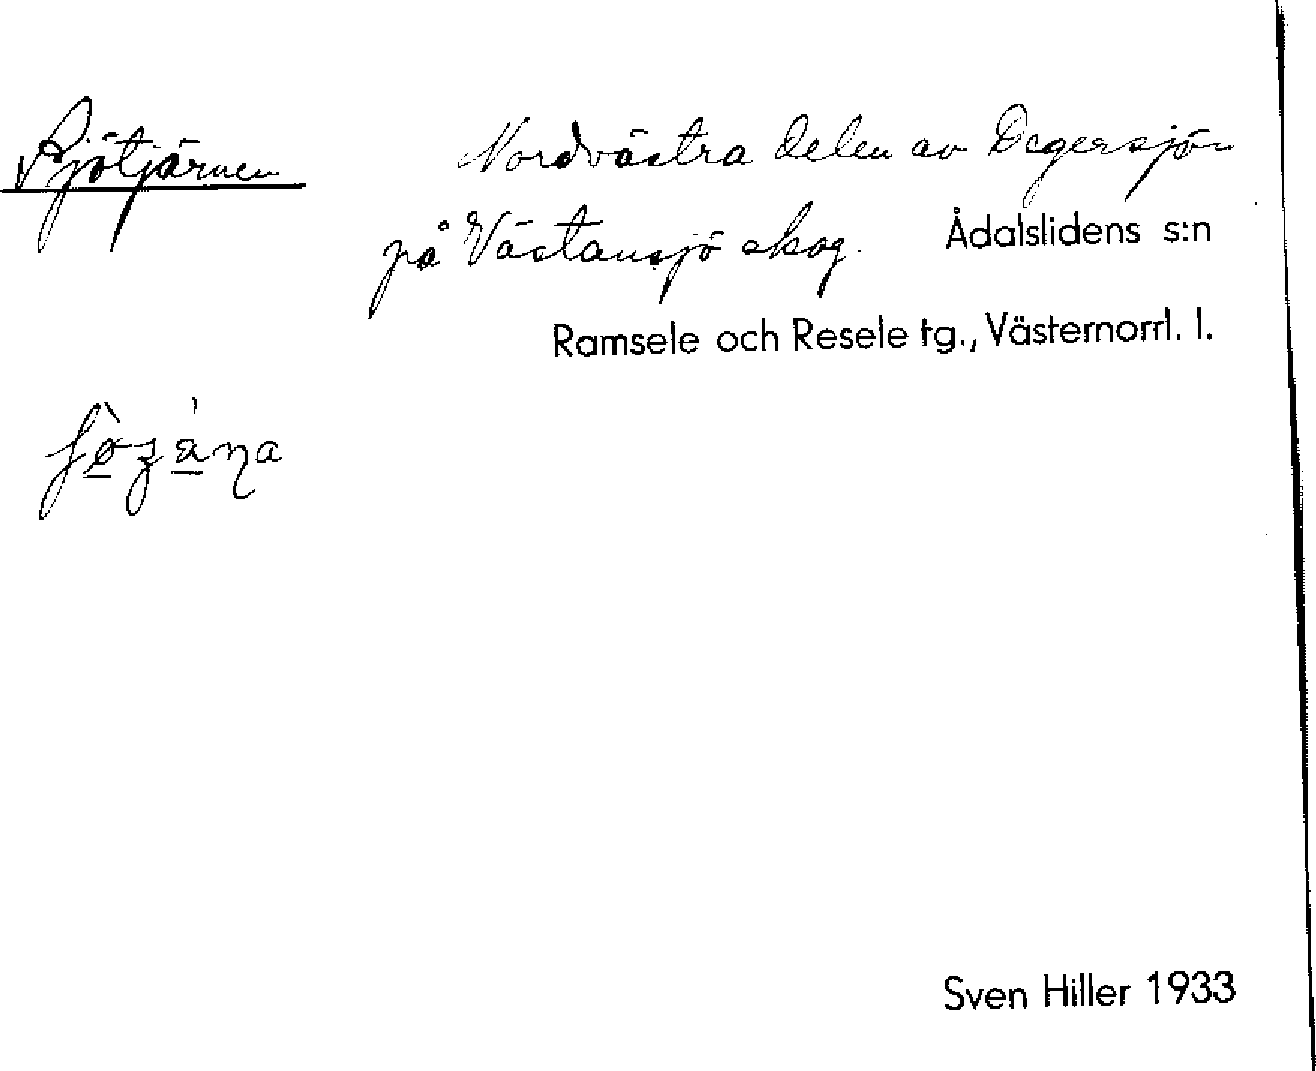 Sjötjärnen
Nordvästra delen av Degersjön
på Västansjö skog.
Ådalslidens s:n
Ramsele och Resele tg., Västernorrl. l.
Sven Hiller 1933